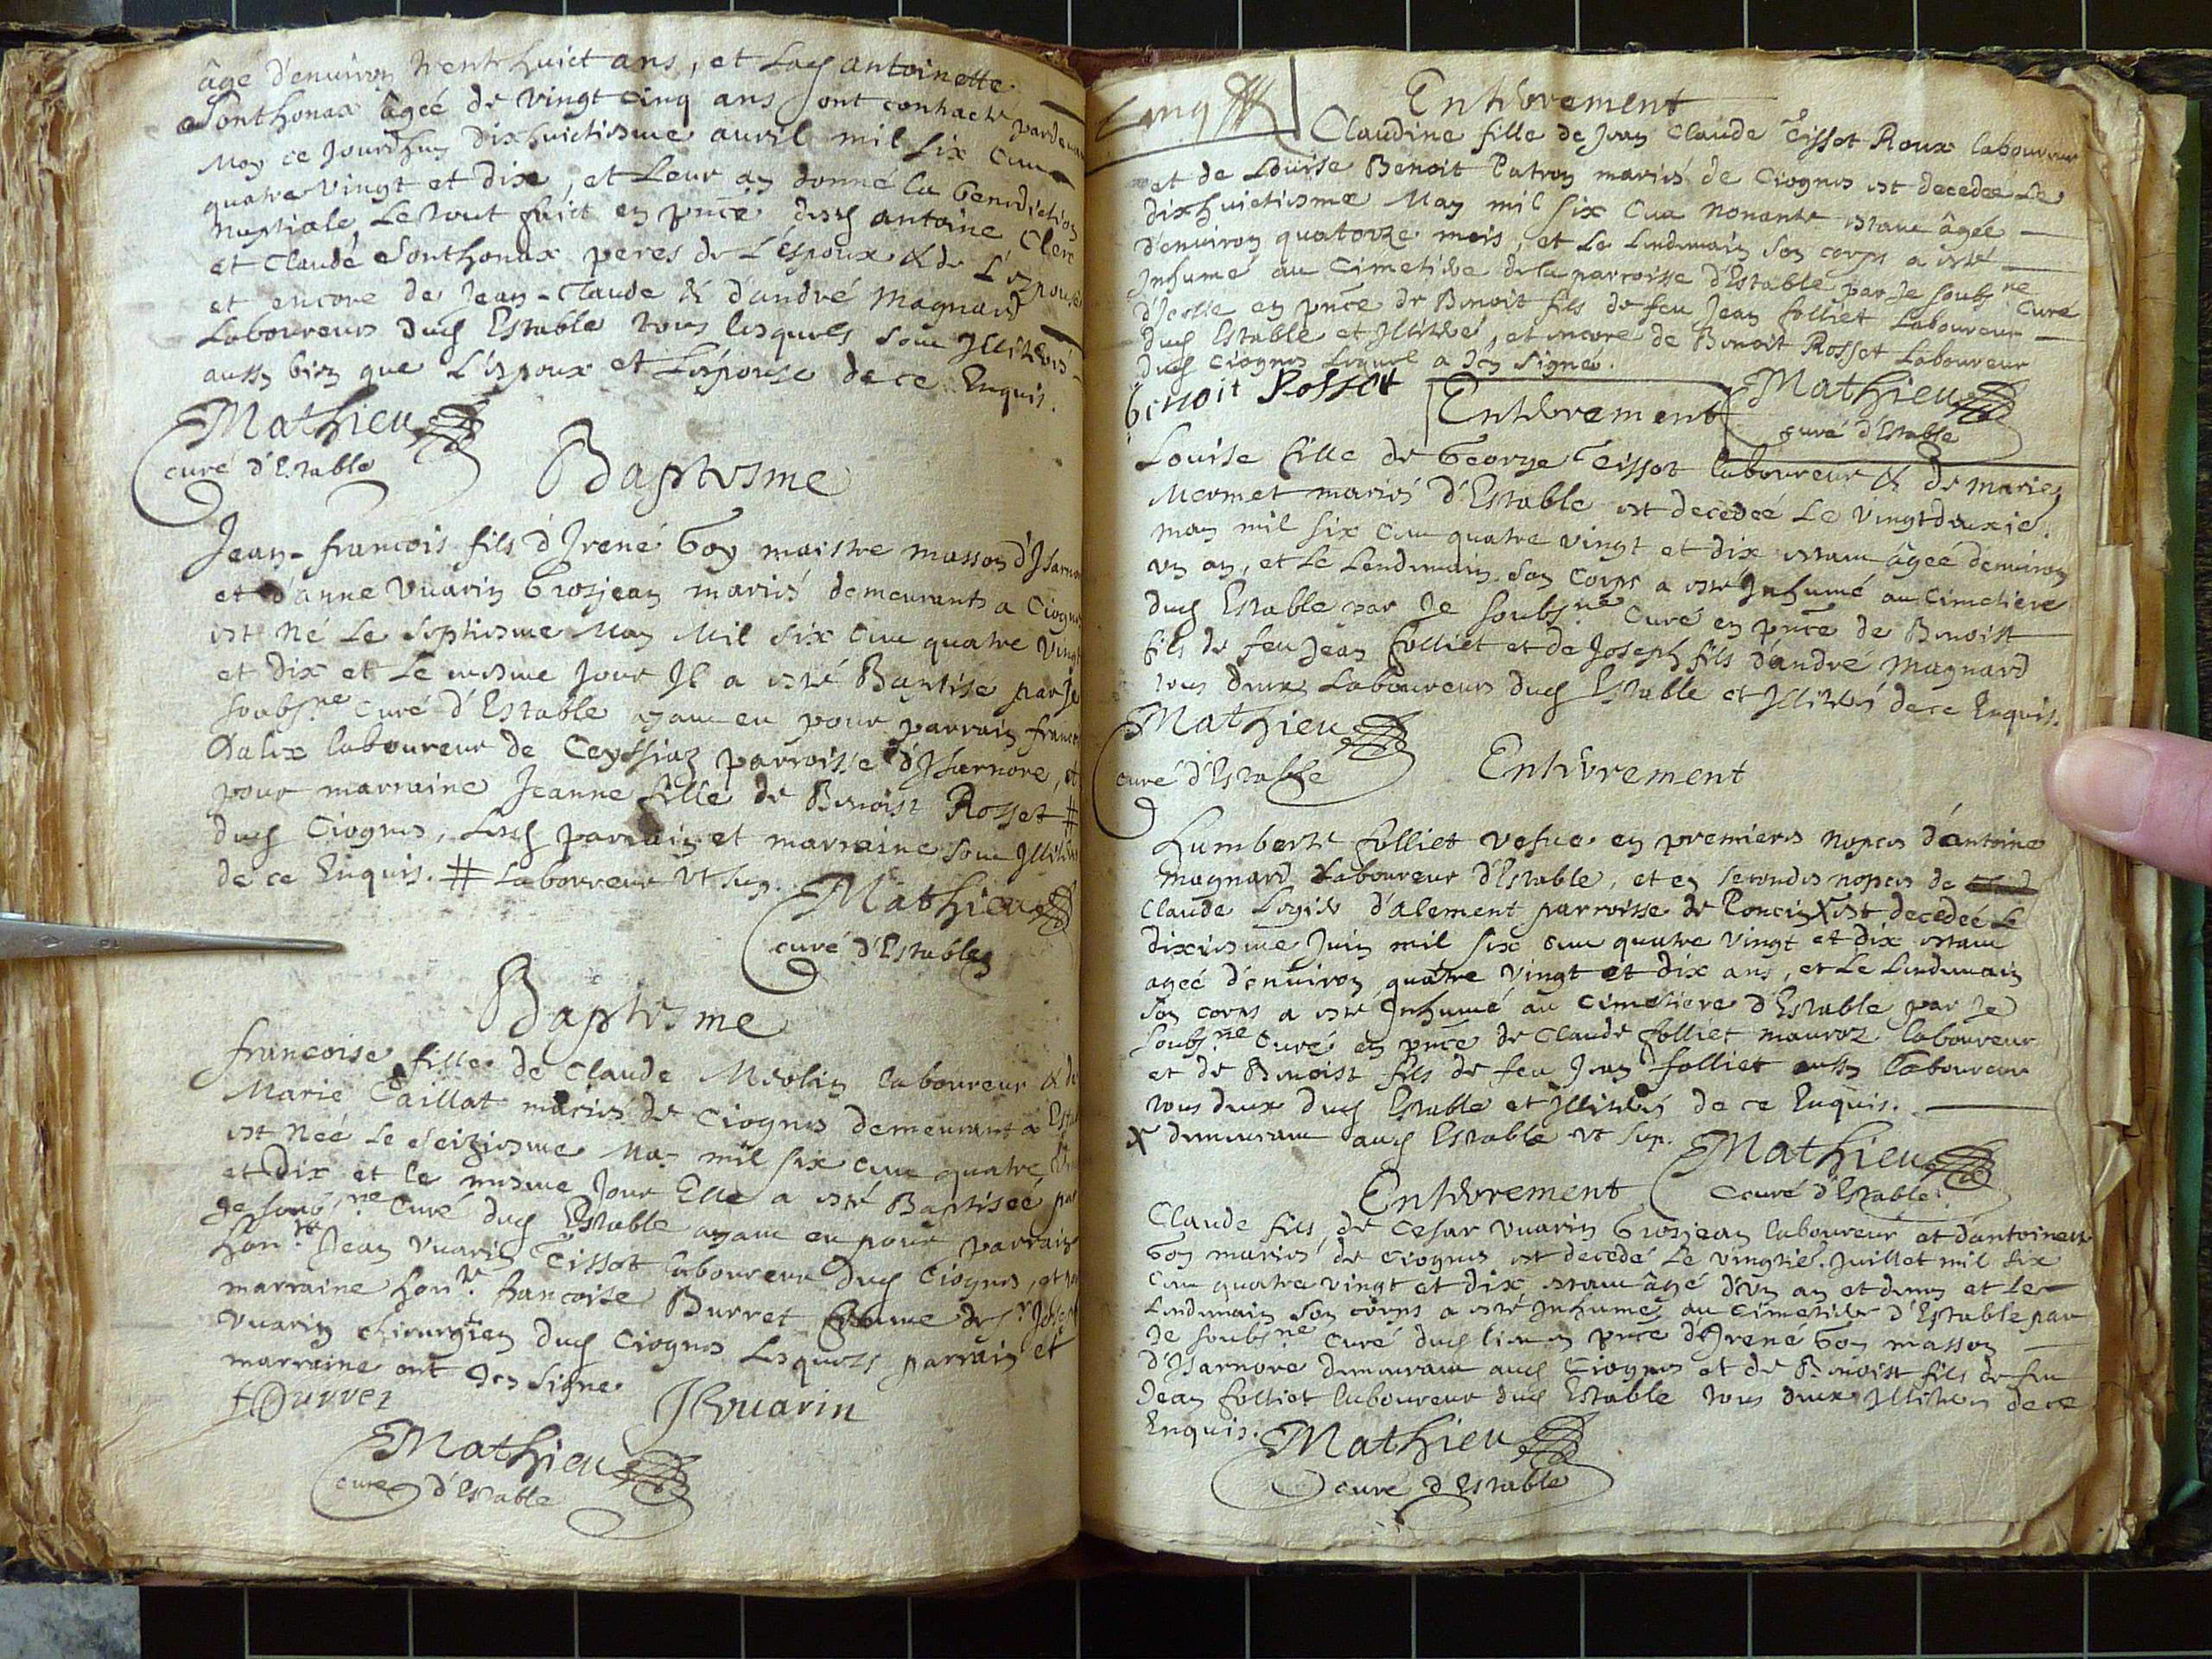 âge d'enuiron trente huict ans, et lad antoinette
Sonthonax âgeé de vingt cinq ans, ont contracté pardeuan
Moy ce Jourdhuy dixhuictiesme auril mil six cens
quatre vingt et dix, et leur ay donné la benediction
nuptiale, Le tout faict en pnce desd antoine Clerc
et Claude Sonthonax peres de L'époux & de L'epouse
et encore de Jean-Claude & d'andré Magnard
Laboureurs dud Estable tous lesquels sont Illiterés
aussy bien que L'époux et L'épouse de ce Enquis.
Mathieu
curé d'Estable
Baptesme
Jean-francois fils d'Irené Goy maistre masson d'Isarno
et d'anne Vuarin Grosjean mariés demeurants a Ciognes
est né Le septiesme May Mil six cens quatre vingt
et dix et Le mesme Jour Il a esté Baptisé par Je
soubs.ne Curé d'Estable ayant eu pour parrain franc
laboureur de Ceyssiaz parroisse d'Isarnore, et
pour marraine Jeanne fille de Benoist Rosset #
dud Ciognes, Lesd parrain et marraine sont Illiterés
de ce Enquis. # Laboureur ut sup.
Mathieu
curé d'Estable
Baptesme
francoise fille de Claude Meolin laboureur & de
Marie Taillat mariés de Ciognes demeurant a Esta
est neé Le seiziesme May mil six cens quatre vin
et dix et le mesme Jour Elle a esté Baptiseé par
Je soubs.ne Curé dud Estable ayant eu pour parrain
hon.te Jean Vuarin Tissot laboureur dud Ciognes, et po
marraine hon.te francoise Burret femme de s.r Josep
Vuarin chirurgien dud Ciognes Lesquels parrain et
marraine ont icy signe.
f Burret
JVuarin
Mathieu
curé d'Estable
Cinq
Enterrement
Claudine fille de Jean Claude Tissot Roux laboureur
et de Loüise Benoit Patron mariés de Ciognes est decedeé Le
dixhuictiesme May mil six cens nonante estant âgeé
d'enuiron quatorze mois, et Le Lendemain son corps a esté
Inhumé au Cimetiere de la parroisse d'Estable par Je soubs.ne Curé
d'Icelle en pnce de Benoit fils de feu Jean folliet Laboureur
dud Estable et Illiteré, et encore de Benoit Rosset Laboureur
dud Ciognes Lequel a icy signé.
benoit Rosset
Mathieu
curé d'Estable
Enterrement
Louise fille de George Tissot laboureur & de Marie
Mermet mariés d'Estable est decedeé Le vingtdeuxie.
may mil six cens quatre vingt et dix estant âgeé denuiron
un an, et Le Lendemain son Corps a esté Inhumé au Cimetiere
dud Estable par Je soubs.ne Curé en pnce de Benoist
fils de feu Jean folliet et de Joseph fils d'andré Magnard
tous deux Laboureurs dud Estable et Illiterés de ce Enquis.
Mathieu
curé d'Estable
Enterrement
Lumberte folliet vefue en premieres nopces d'antoine
Magnard Laboureur d'Estable, et en secondes nopces de
Claude Logier d'alement parroisse de Poncin X est decedeé Le
dixiesme Juin mil six cens quatre vingt et dix estant
ageé d'enuiron quatre vingt et dix ans, et Le Lendemain
son corps a esté Inhumé au Cimetiere d'Estable par Je
soubs.ne Curé en pnce de Claude folliet mauroz laboureur
et de Benoist fils de feu Jean folliet aussy laboureur
tous deux dud Estable et Illiterés de ce Enquis.
X demeurant aud Estable ut sup.
Mathieu
Curé d'Estable
Enterrement
Claude fils de Cesar Vuarin Grosjean laboureur et d'antoinette
Goy mariés de Ciognes est decedé Le vingtié. Juillet mil six
cens quatre vingt et dix estant âgé d'un an et demy et Le
Lendemain son corps a esté Inhumé au Cimetiere d'Estable par
Je soubs.ne Curé dud lieu en pnce d'Irené Goy masson
d'Isarnore demeurant aud Ciognes et de Benoist fils de feu
Jean folliet laboureur dud Estable tous deux Illiterés de ce
Enquis.
Mathieu
curé d'Estable